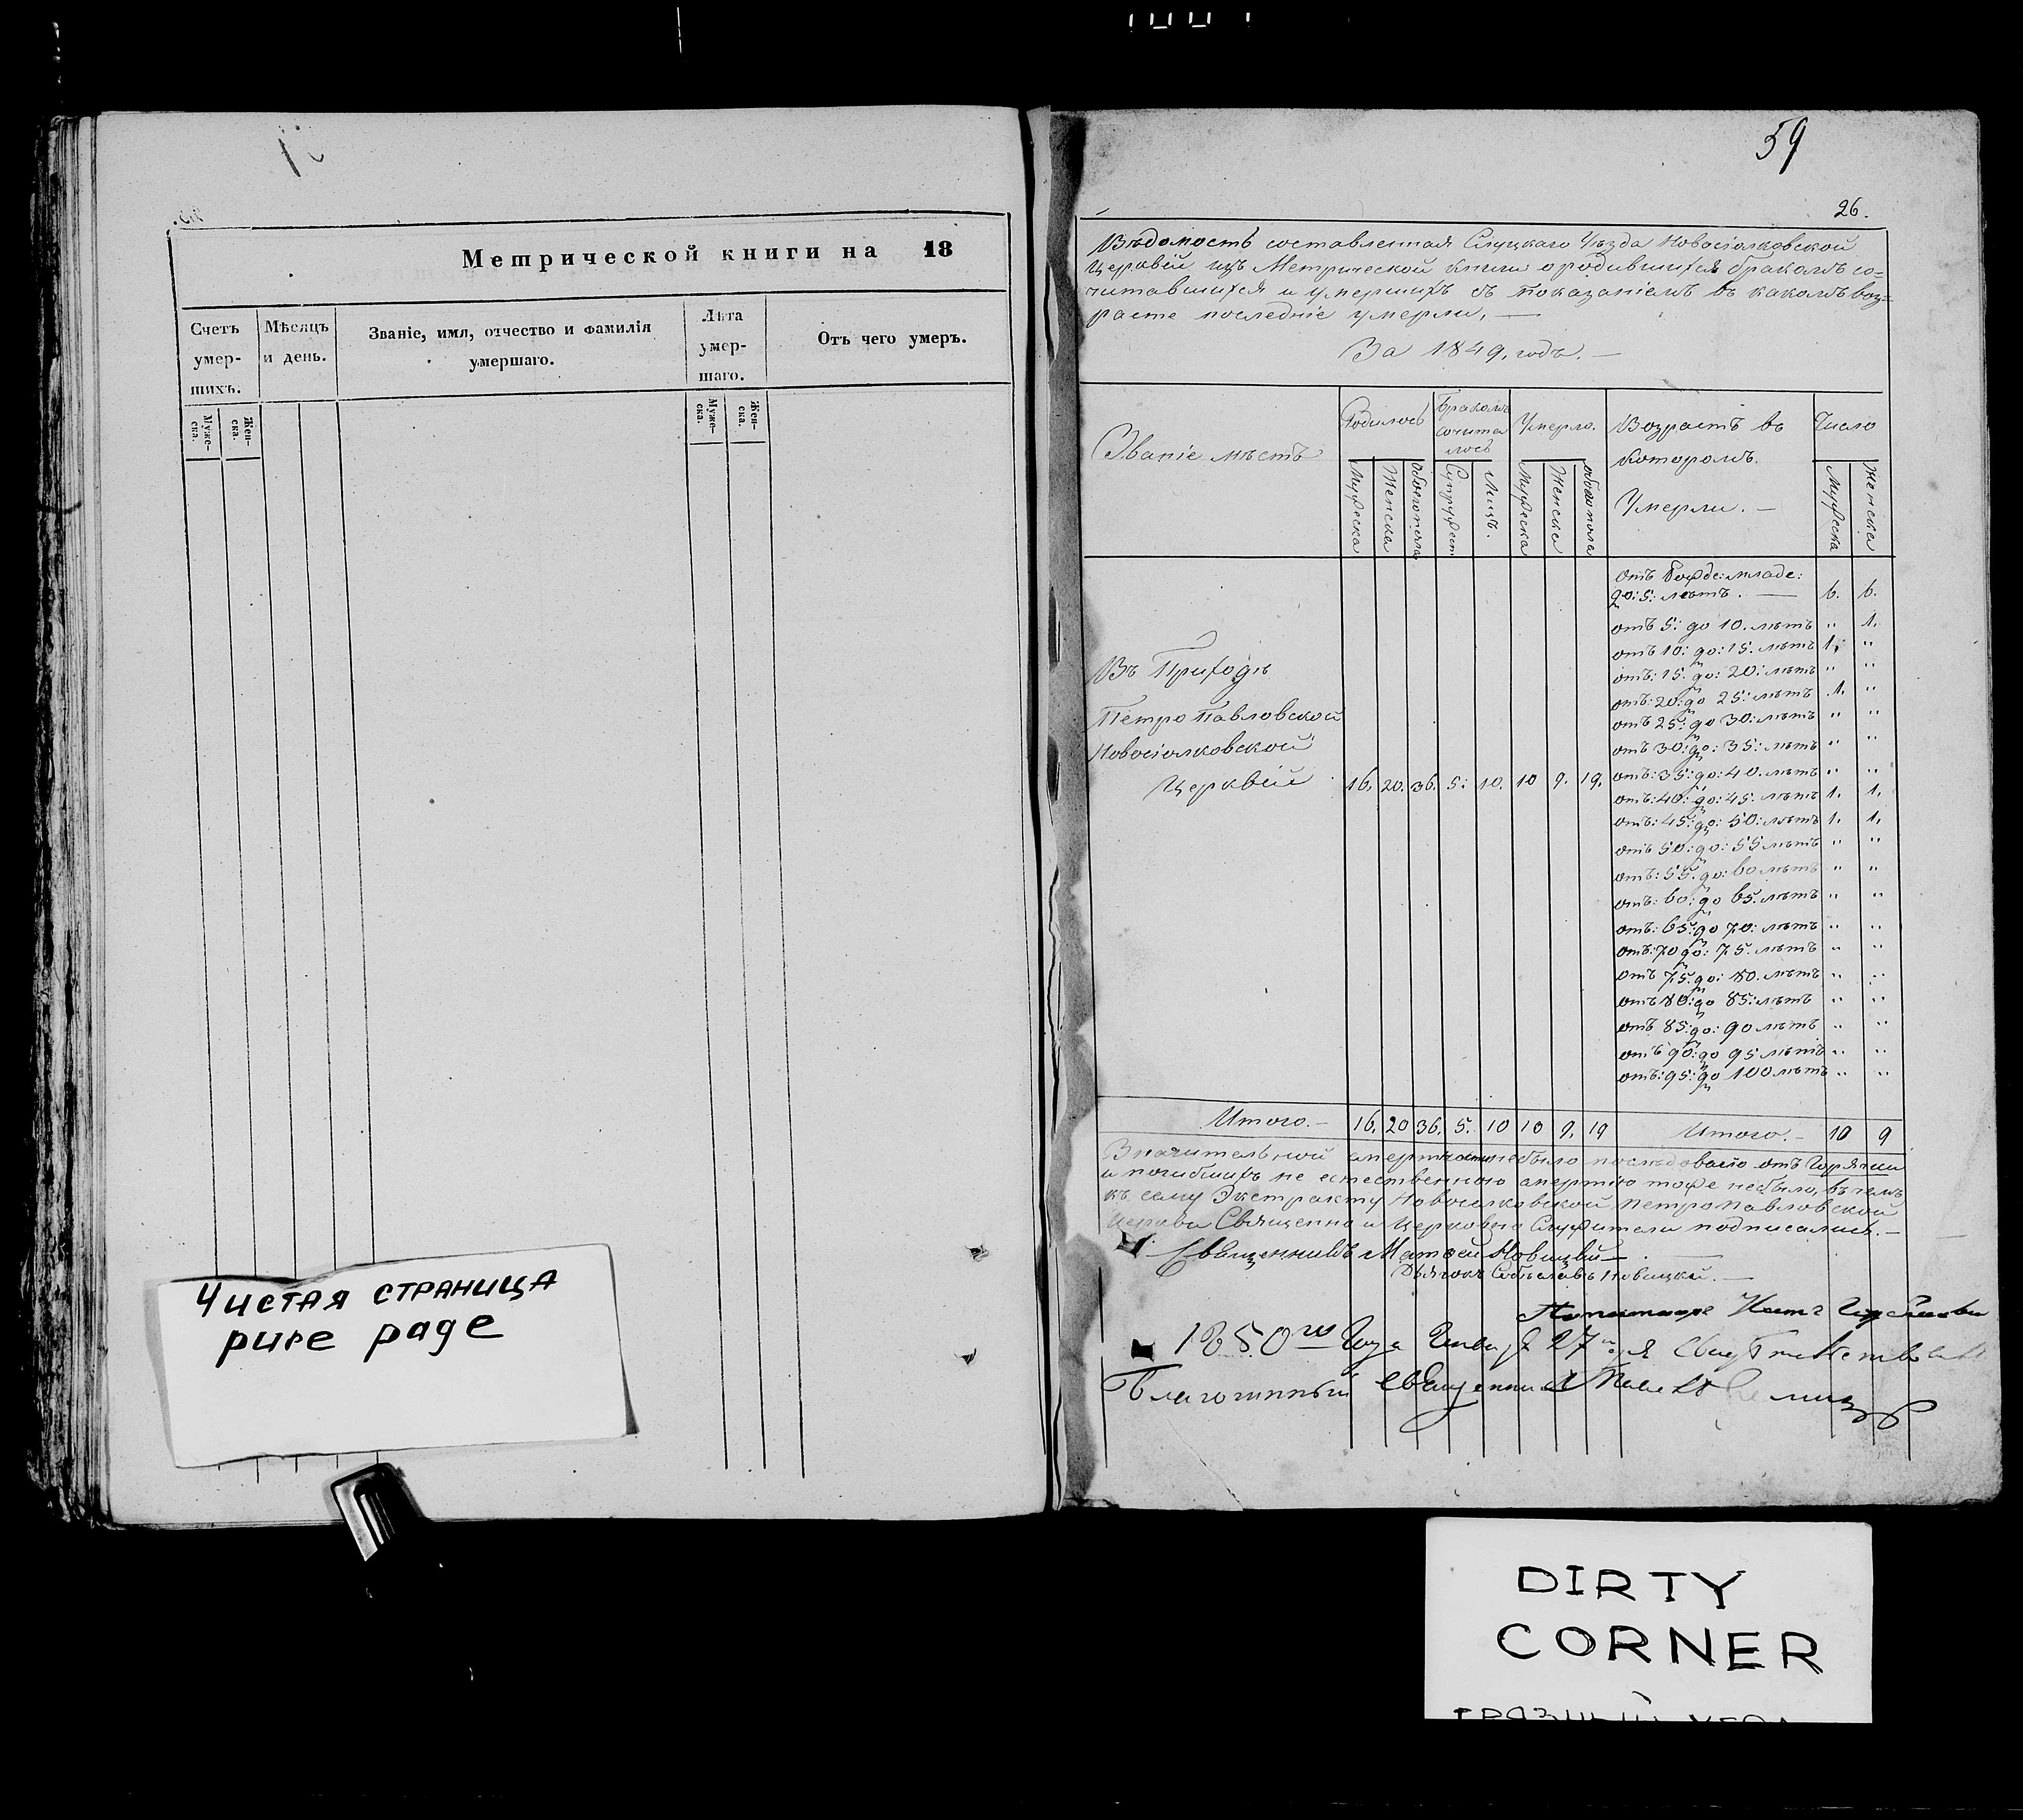 Метрической книги на 18
Счетъ умер-шихъ.
Мѣсяцъ и день.
Званіе, имя, отчество и фамилія умершаго.
Лѣта умер-шаго.
Отъ чего умеръ.
Муже-ска.
Жен-ска.
Муже-ска.
Жен-ска.
Чистая страница
pure page
59
26.
Вѣдомость составленная Слуцкаго Уѣзда Новосіолковской
Церквіи изъ Метрической книги о родившихся бракомъ со=
читавшихся и умершихъ съ показаніемъ въ какомъ воз=
расте последніе умерли. —
За 1849. годъ. —
Званіе мѣстъ
Родилось
Бракомъ сочита лось
Умерло.
Возрастъ въ которомъ Умерли. —
Число
Мужеска
Женска
обоего пола
Супружест
Лицъ.
Мужеска
Женска
обоего пола
Мужеска
Женска
отъ Рожде: младе:
до: 5: летъ. — 6. 6.
отъ 5: до 10. лѣтъ " 1.
отъ 10: до: 15. лѣтъ 1. "
отъ: 15. до: 20: лѣтъ " "
отъ: 20: до 25: лѣтъ 1. "
отъ 25: до 30: лѣтъ " "
отъ 30: до: 35: лѣтъ " "
отъ: 35: до: 40. лѣтъ " "
отъ: 40: до: 45. лѣтъ 1. 1.
отъ: 45: до: 50: лѣтъ 1. 1.
отъ 50: до: 55 лѣтъ " "
отъ: 55. до: 60 лѣтъ " "
отъ: 60: до 65. лѣтъ " "
отъ: 65: до 70: лѣтъ " "
отъ: 70 до: 75. лѣтъ " "
отъ 75: до: 80. лѣтъ " "
отъ 80: до 85: лѣтъ " "
отъ 85: до: 90 лѣтъ " "
отъ 90: до 95 лѣтъ " "
отъ: 95: до 100 лѣтъ " "
Въ Приходѣ
Петро Павловской
Новосіолковской
Церквіи 16. 20. 36. 5: 10. 10 9. 19.
Итого. — 16. 20 36. 5. 10 10 9. 19 Итого. — 10 9
Значительной смертности небыло последовало отъ горячки
и погибшихъ не естественною смертію тоже небыло, въ чемъ
къ сему Экстракту Новоселковской Петропавловской
Церкви Священно и Церковно Служители подписались. —
Священникъ Матвей Новицкій —
Дьячокъ Новицкій. —
1850го Года Января 27 дня
Благочинный Священникъ
DIRTY
CORNER